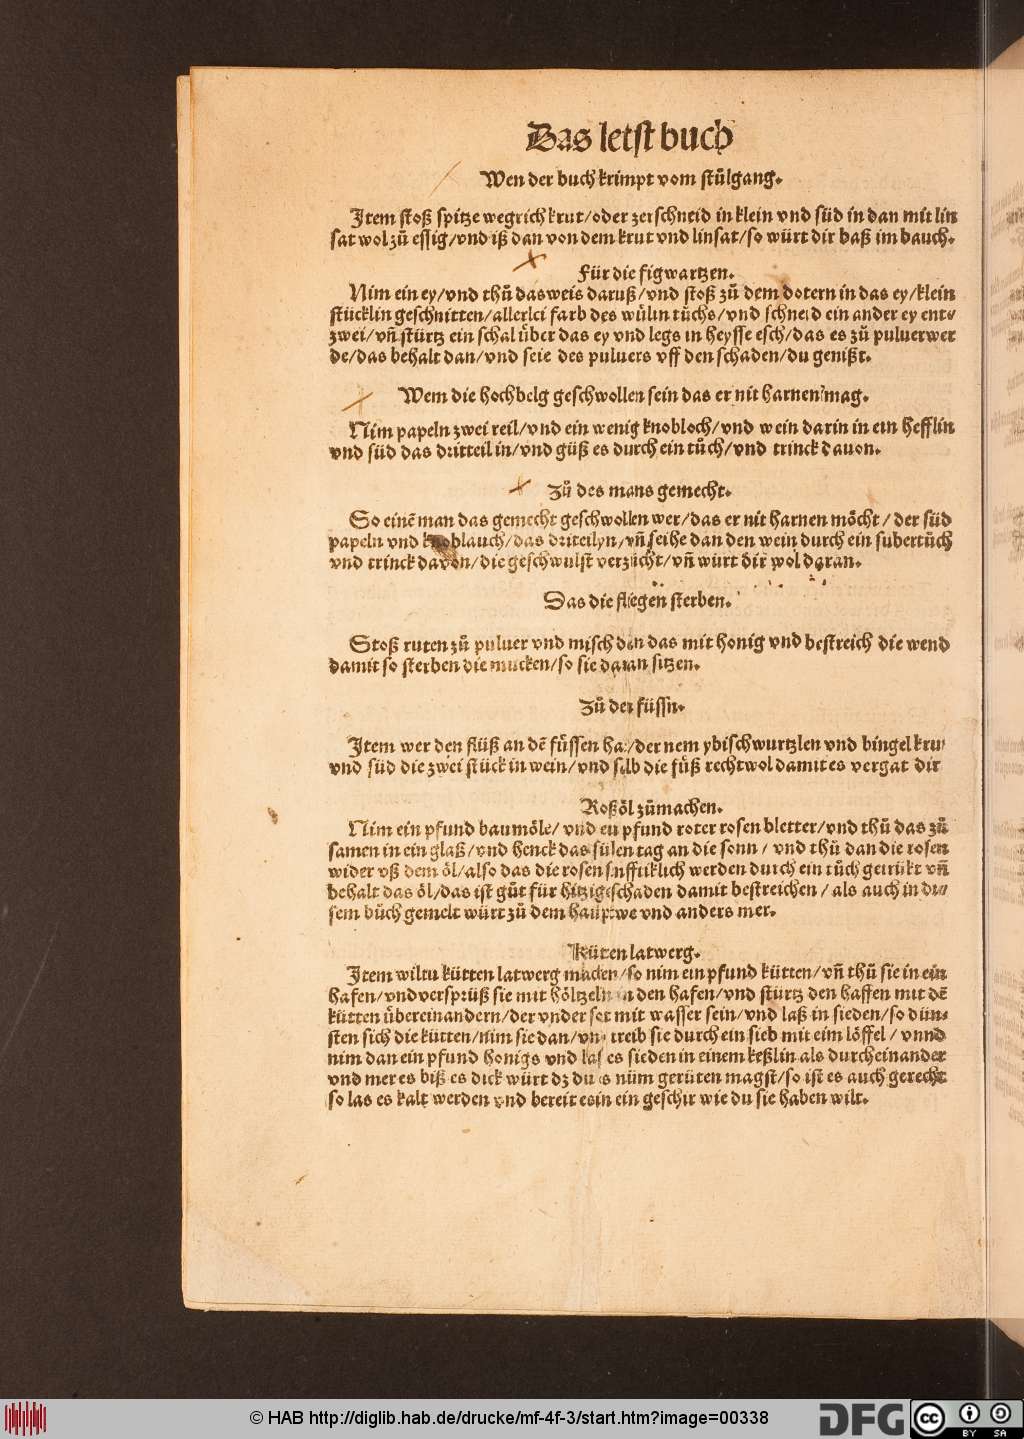 Das letst buch
Wen der buch krimpt vom stůlgang.
Item stoß spitze wegrich krut/oder zerschneid in klein vnd süd in dan mit lin
sat wol zů essig/vnd iß dan von dem krut vnd linsat/so würt dir baß im bauch.
Für die figwartzen.
Nim ein ey/vnd thů das weis daruß/vnd stoß zů dem dotern in das ey/klein
stücklin geschnitten/allerlei farb des wülin tůchs/vnd schneid ein ander ey ent⸗
zwei/vñ stürtz ein schal über das ey vnd legs in heysse esch/das es zů puluer wer
de/das behalt dan/vnd seie des puluers vff den schaden/du genißt.
Wem die hochbelg geschwollen sein das er nit harnen mag.
Nim papeln zwei teil/vnd ein wenig knobloch/vnd wein darin in ein hefflin
vnd süd das dritteil in/vnd güß es durch ein tůch/vnd trinck dauon.
Zů des mans gemecht.
So einẽ man das gemecht geschwollen wer/das er nit harnen möcht/der süd
papeln vnd knoblauch/das driteilyn/vñ seihe dan den wein durch ein subertůch
vnd trinck davon/die geschwulst verzücht/vñ würt dir wol daran.
Das die fliegen sterben.
Stoß ruten zů puluer vnd misch dan das mit honig vnd bestreich die wend
damit so sterben die mucken/so sie daran sitzen.
Zů den füssn.
Item wer den flüß an dẽ füssen hat/der nem ybischwurtzlen vnd bingel kru
vnd süd die zwei stück in wein/vnd salb die füß recht wol damit es vergat dir
Roßöl zůmachen.
Nim ein pfund baumöle/vnd ein pfund roter rosen bletter/vnd thů das zů
samen in ein glaß/vnd henck das siben tag an die sonn/vnd thů dan die rosen
wider vß dem öl/also das die rosen senfftiklich werden durch ein tůch getrükt vñ
behalt das öl/das ist gůt für hitzige schaden damit bestreichen/als auch in di⸗
sem bůch gemelt würt zů dem hauptwe vnd anders mer.
Küten latwerg.
Item wiltu kütten latwerg machen/so nim ein pfund kütten/vñ thů sie in ein
hafen/vnd versprüß sie mit höltzeln in den hafen/vnd stürtz den haffen mit dẽ
kütten übereinandern/der vnder sei mit wasser sein/vnd laß in sieden/so dün⸗
sten sich die kütten/nim sie dan/vnd treib sie durch ein sieb mit eim löffel/vnnd
nim dan ein pfund honigs vnd laß es sieden in einem keßlin als durcheinander
vnd mer es biß es dick würt dz du es nüm gerüten magst/so ist es auch gerecht
so las es kalt werden vnd bereit es in ein geschir wie du sie haben wilt.
© HAB http://diglib.hab.de/drucke/mf-4f-3/start.htm?image=00338
DFG
CC BY SA